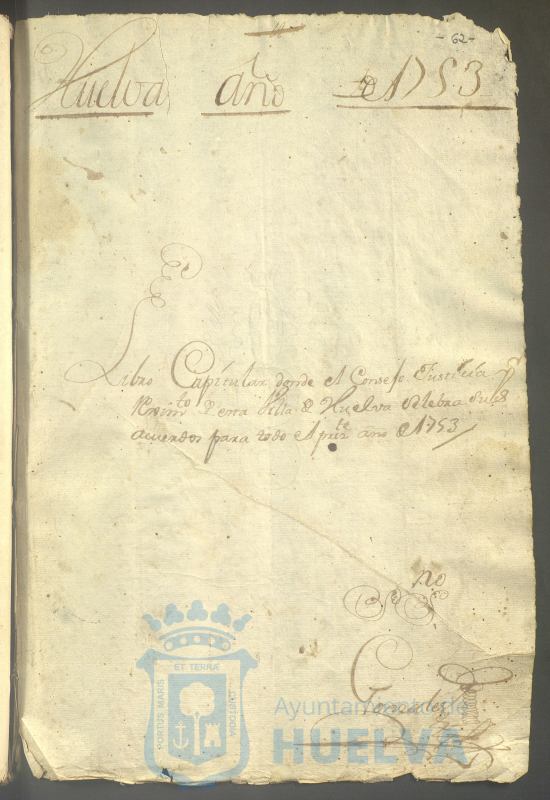 - 62 -
Huelva año de 1753
Libro Capitular donde el Consejo Justicia y
Rexim.to de esta Villa de Huelva celebra sus
acuerdos para todo el pres.te año de 1753
no
Gonzalez
PORTUS MARIS ET TERRÆ CUSTODIA
Ayuntamiento de
HUELVA